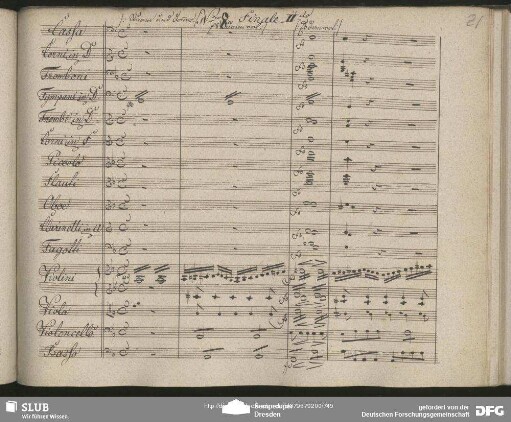 Finale II
21
Cassa
Corni in D
Tromboni
Tympani in D
Trombe in D
Corni in F
Piccolo
Flauti
Oboe
Clarinetti in A
Fagotti
Violini
Viola
Violoncello
Basso
SLUB
Wir führen Wissen.
Dresden
gefördert von der
Deutschen Forschungsgemeinschaft
DFG